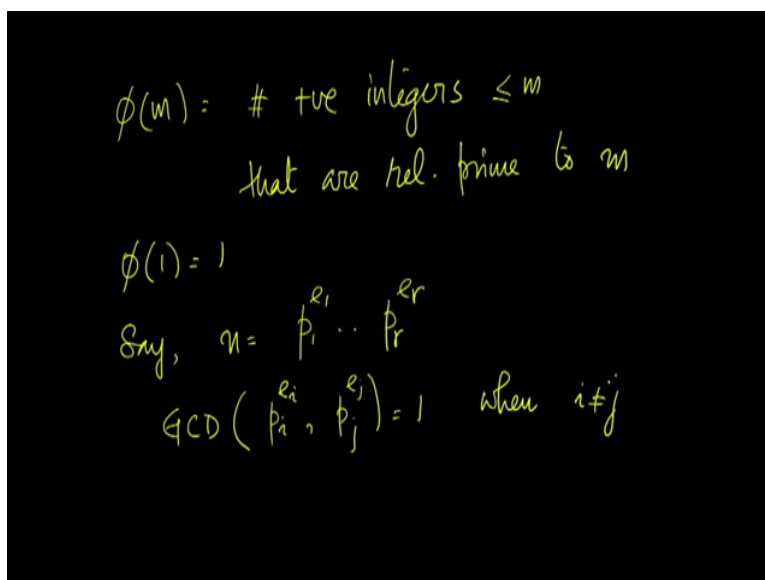 φ(m) = # +ve integers ≤ m
that are rel. prime to m
φ(1) = 1
Say, n = p₁^e₁ .. pᵣ^eᵣ
GCD(pᵢ^eᵢ, pⱼ^eⱼ) = 1 when i ≠ j